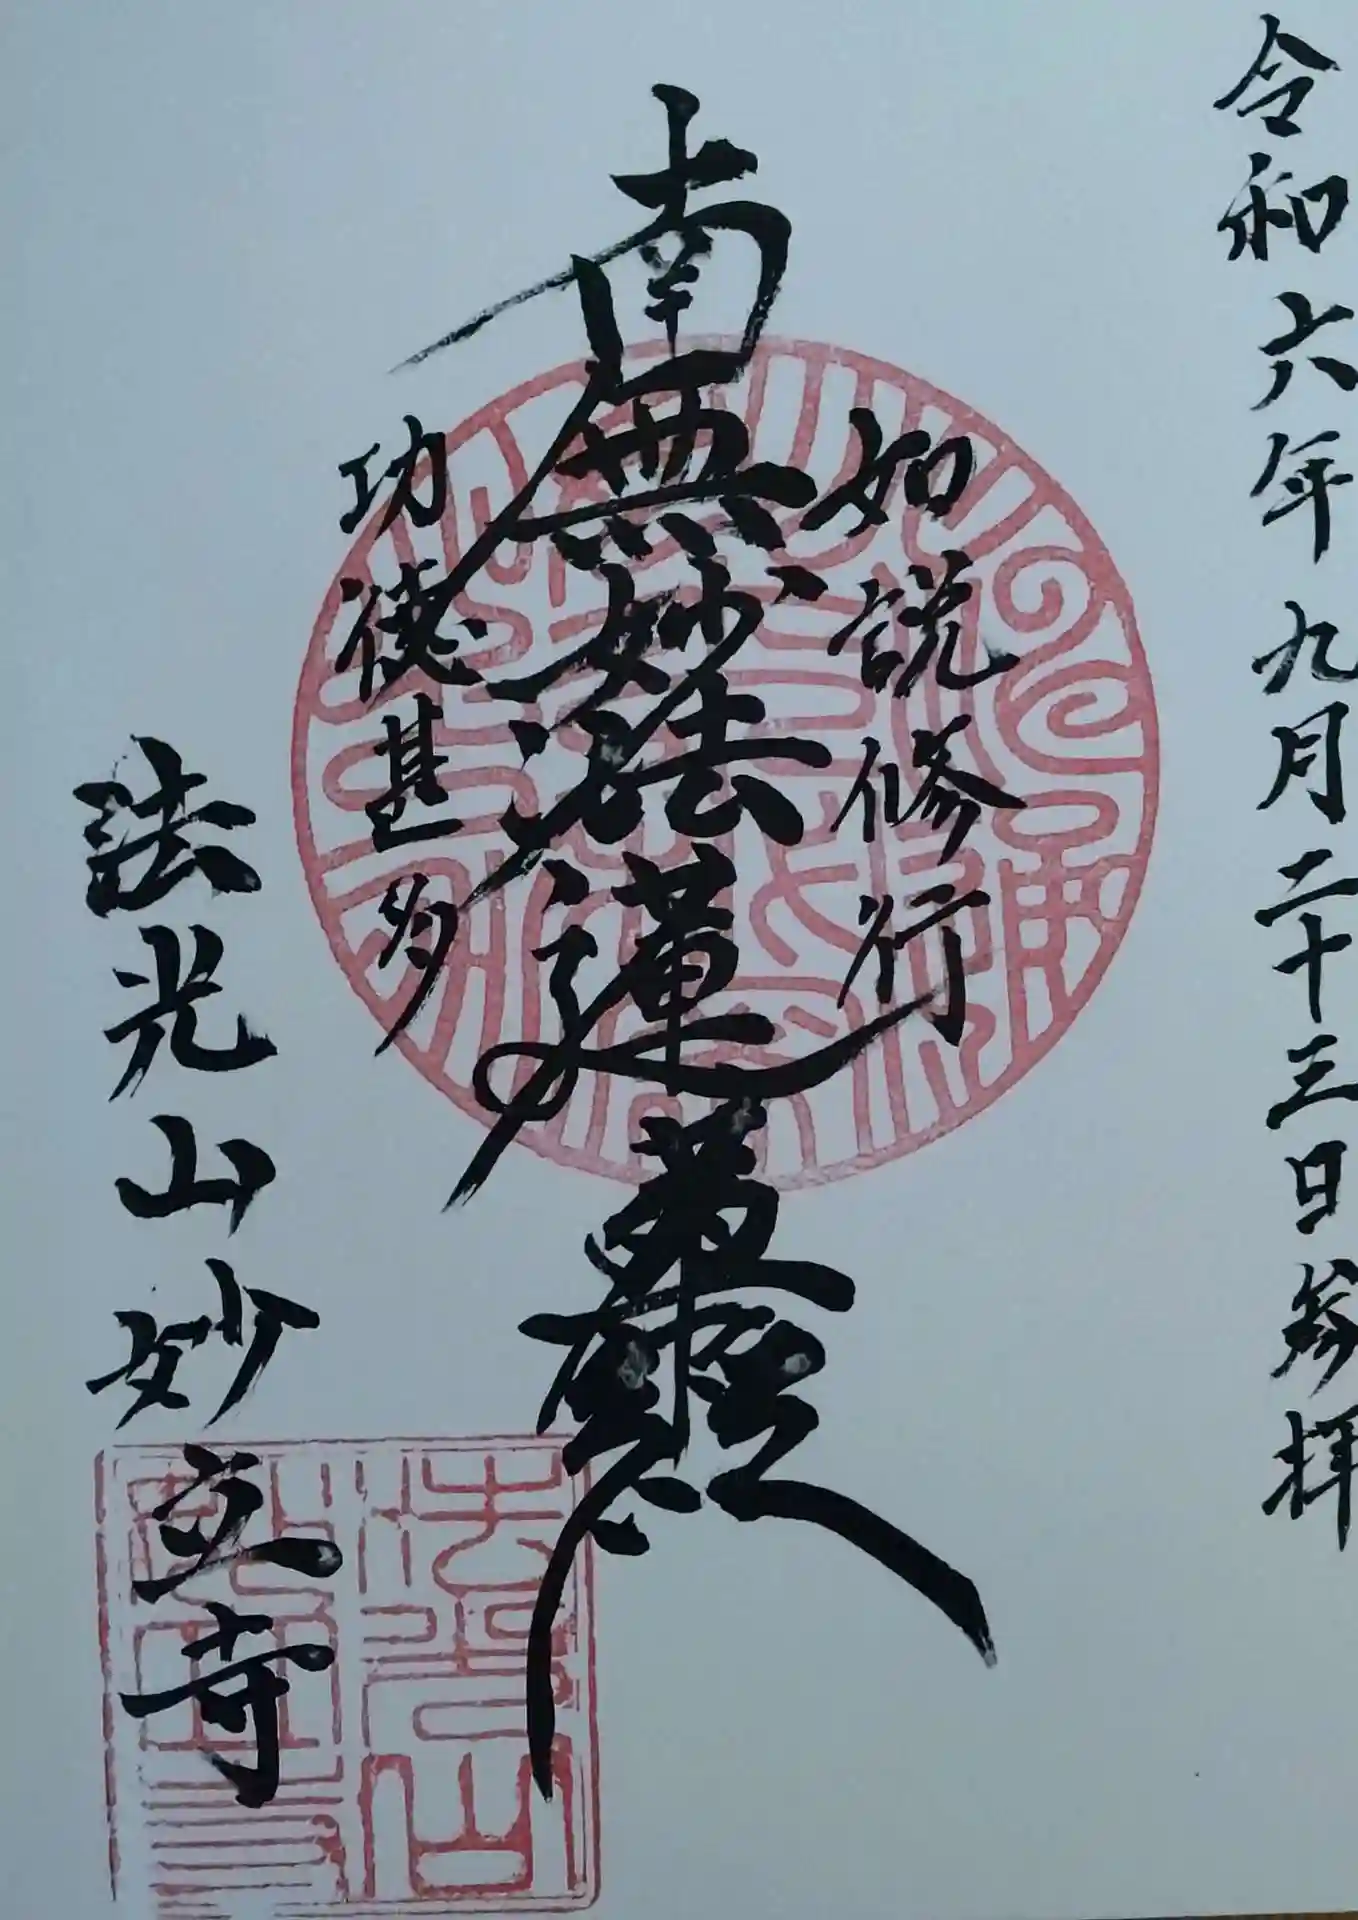 令和六年九月二十三日参拝
如説修行
南無妙法蓮華經
功徳甚多
法光山妙立寺
法光山
妙立寺